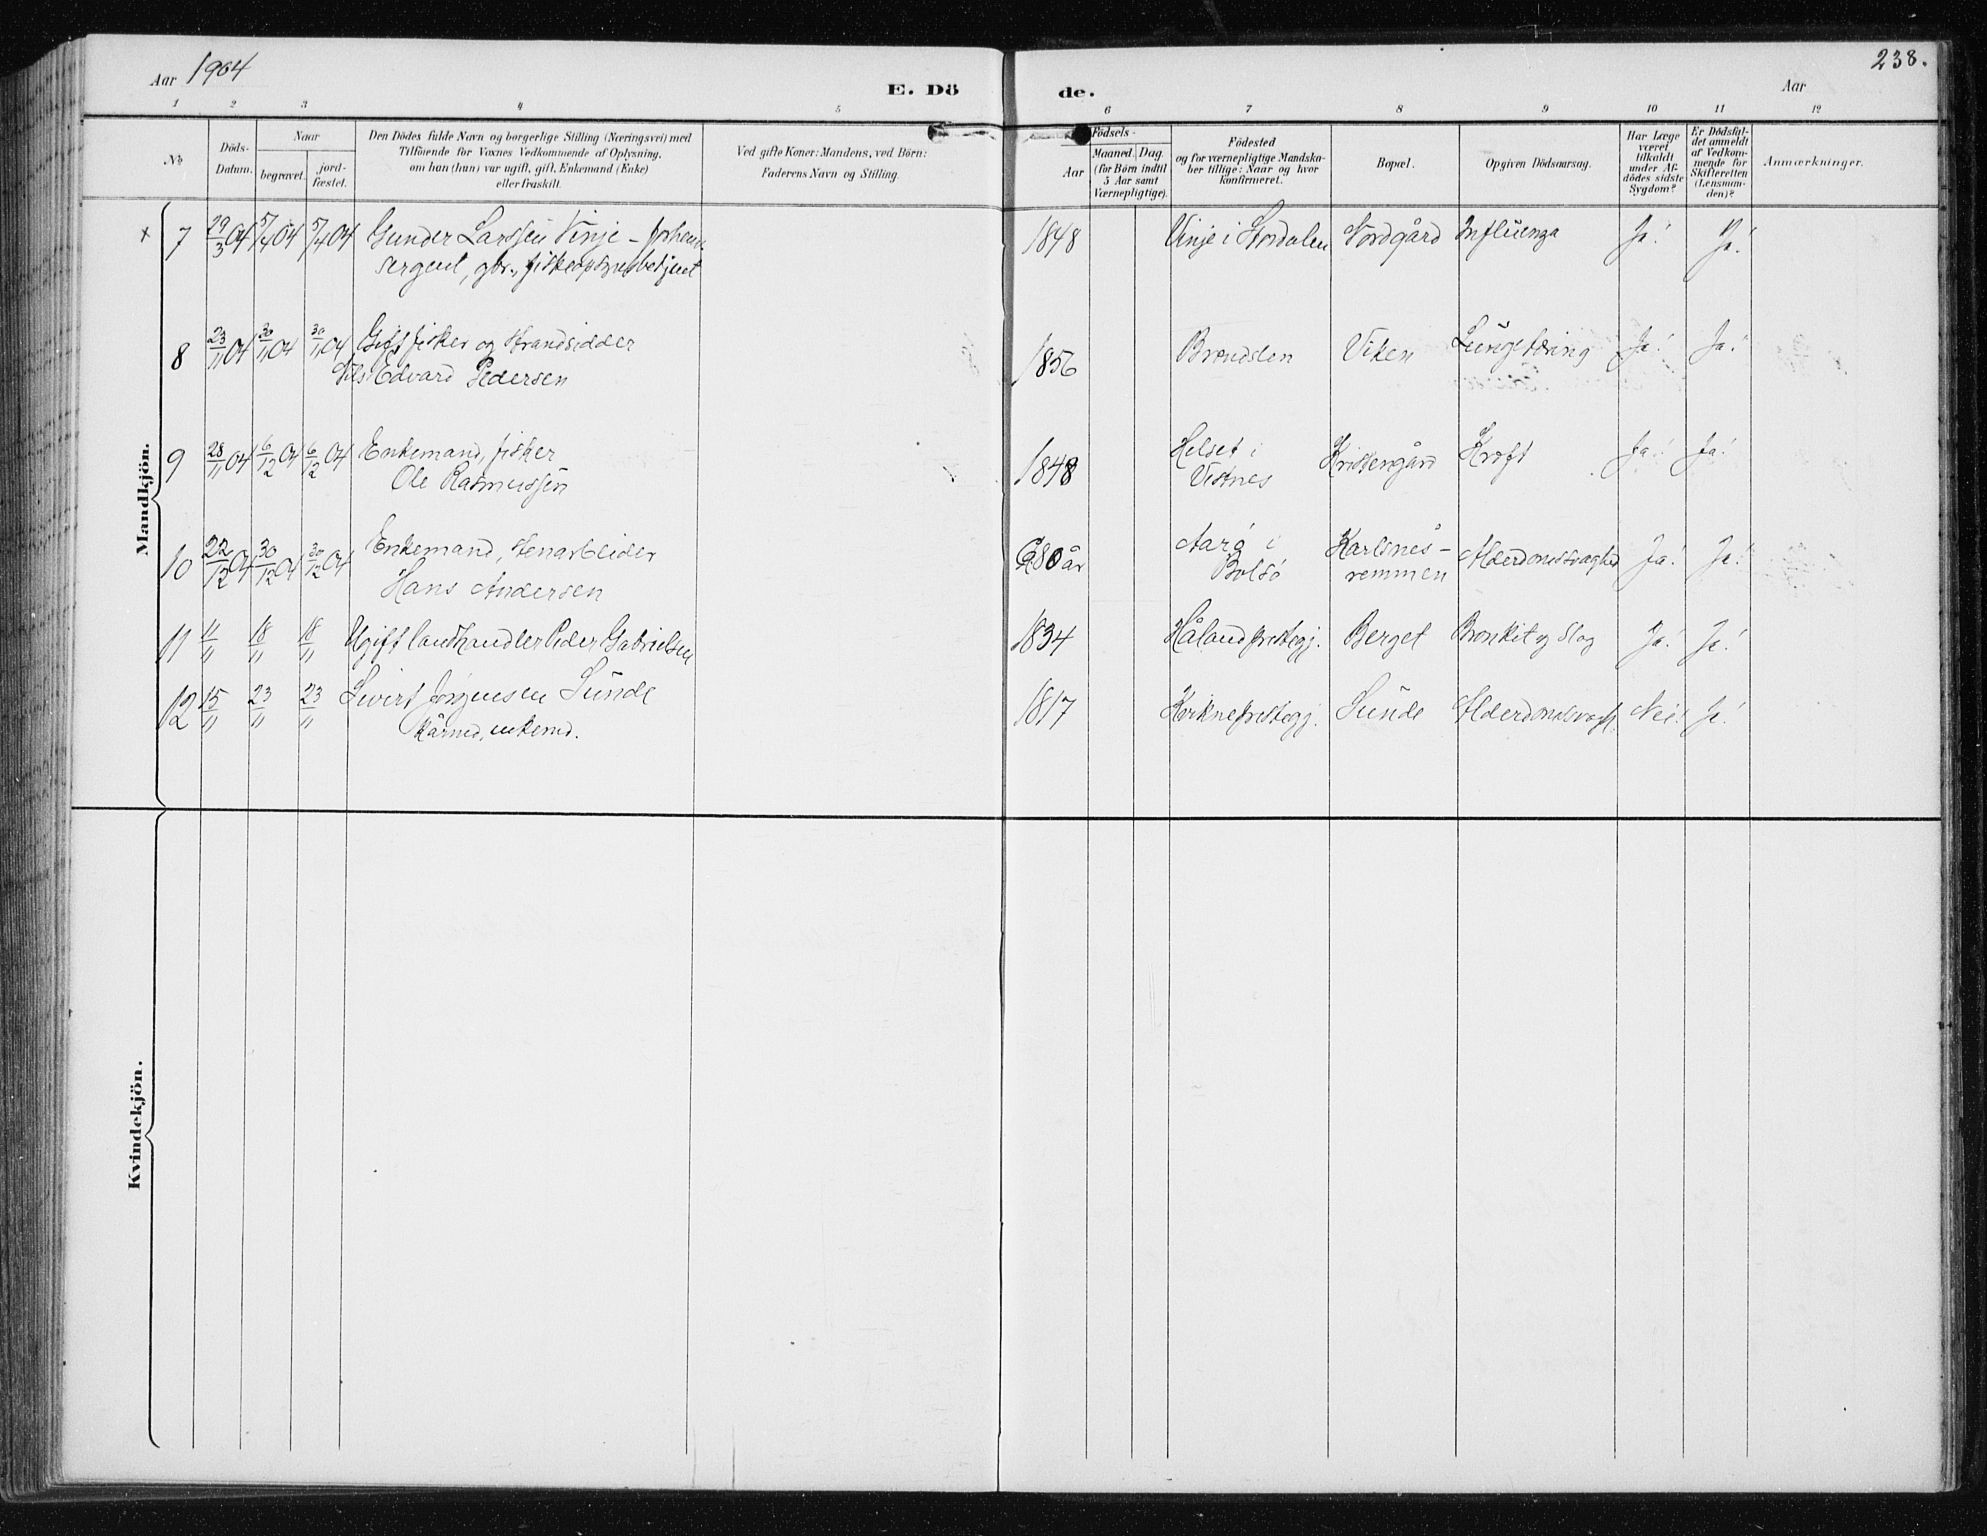 Aar 1904
E. Dö
de.
Aar
238.
1 2 3 4 5 6 7 8 9 10 11 12
No
Döds-Datum.
Naar
begravet.
jord-fæstet.
Den Dödes fulde Navn og borgerlige Stilling (Næringsvei) med
Tilföiende for Voxnes Vedkommende af Oplysning,
om han (hun) var ugift, gift, Enkemand (Enke)
eller fraskilt.
Ved gifte Koner: Mandens, ved Börn:
Faderens Navn og Stilling.
Födsels-
Aar
Maaned. Dag.
(for Börn indtil
5 Aar samt
Værnepligtige).
Födested
og for værnepligtige Mandska-
ber tillige: Naar og hvor
konfirmeret.
Bopæl.
Opgiven Dödsaarsag.
Har Læge
været
tilkaldt
under Af-
dödes sidste
Sygdom?
Er Dödsfal-
det anmeldt
af Vedkom-
mende for
Skifteretten
(Lensman-
den)?
Anmærkninger.
Mandkjön.
x 7 29/3 04 5/4 04 5/4 04 Gunder Larssen Vinje – 1848 Vinje i Stordalen Nordgård Influenza Ja! Ja!
sergent, gbr., fiskeopsynsbetjent
8 23/11 04 30/11 04 30/11 04 Gift fisker og strandsidder 1856 Viken Lungetæring Ja! Ja!
Nils Edvard Pedersen
9 28/11 04 6/12 04 6/12 04 Enkemand, fisker 1848 Helset i Kristengård Kræft Ja! Ja!
Ole Rasmussen Vestnes
10 22/12 04 30/12 04 30/12 04 Enkemand, stenarbeider 80 år Aarø i Karlsnes- Alderdomssvaghed Ja! Ja!
Hans Andersen Bolsø remmen
11 11/11 18/11 18/11 Ugift landhandler Peder Gabrielsen 1834 Håland prestegj. Berget Bronkit og Slag Ja! Ja!
12 15/11 23/11 23/11 Sivert Jörgensen Sunde 1817 Kvikne prestegj. Sunde Alderdomssvagh. Nei! Ja!
kårmd, enkemd.
Kvindekjön.